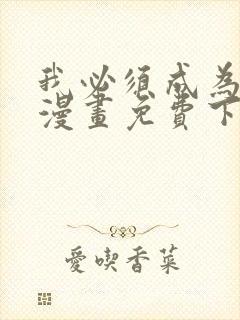 我必须成为
漫畫免費下
愛喫香菜